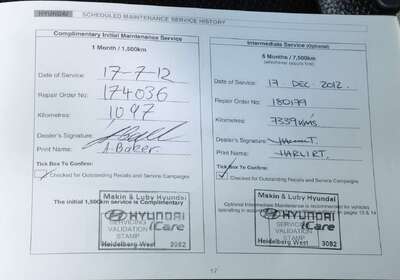 HYUNDAI SCHEDULED MAINTENANCE SERVICE HISTORY
Complimentary Initial Maintenance Service
1 Month / 1,500km
Date of Service: 17-7-12
Repair Order No: 174036
Kilometres: 1097
Dealer's Signature:
Print Name: A. Baker.
Tick Box To Confirm:
Checked for Outstanding Recalls and Service Campaigns
The initial 1,500km service is Complimentary
Makin & Luby Hyundai
HYUNDAI
SERVICING VALIDATION STAMP
iCare
Heidelberg West 3082
Intermediate Service (Optional)
6 Months / 7,500km
(whichever occurs first)
Date of Service: 17 DEC 2012.
Repair Order No: 180179
Kilometres: 7339KMS
Dealer's Signature:
Print Name: HARLIRT.
Tick Box To Confirm:
Checked for Outstanding Recalls and Service Campaigns
Optional Intermediate Maintenance is recommended for vehicles
operating in
Makin & Luby Hyundai
HYUNDAI
SERVICING VALIDATION STAMP
iCare
Heidelberg West 3082
17